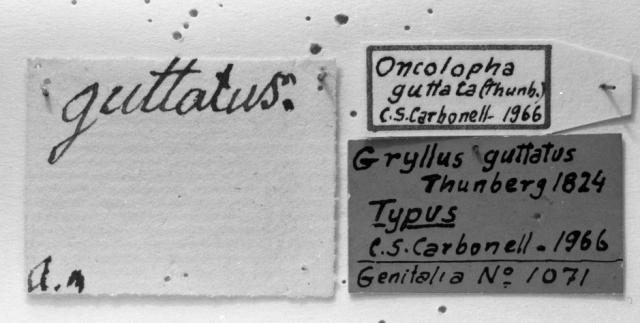 guttatus.
a.m
Oncolopha
guttata (Thunb.)
C.S. Carbonell - 1966
Gryllus guttatus
Thunberg 1824
Typus
C.S. Carbonell - 1966
Genitalia Nº 1071